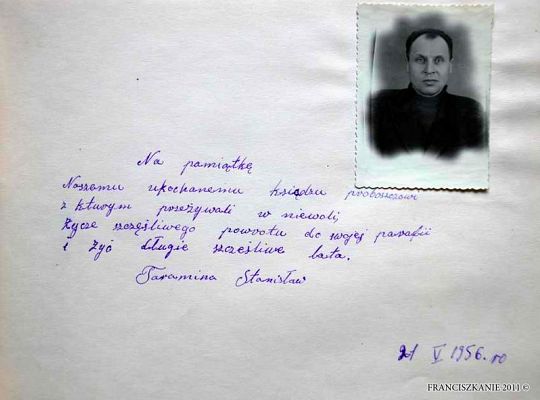 Na pamiątkę
Naszemu ukochanemu księdzu proboszczowi
z kturym przeżywali w niewoli
Życze szczęśliwego powrotu do swojej parafii
i żyć długie szczęśliwe lata.
Taramina Stanisław
21 V 1956. ro
FRANCISZKANIE 2011 ©